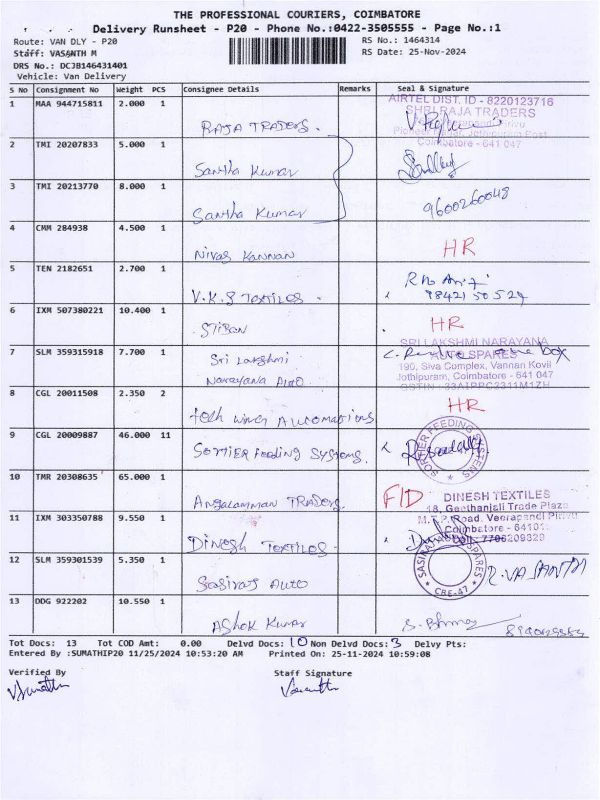 THE PROFESSIONAL COURIERS, COIMBATORE
Delivery Runsheet - P20 - Phone No.:0422-3505555 - Page No.:1
Route: VAN DLY - P20
RS No.: 1464314
Staff: VASANTH M
RS Date: 25-Nov-2024
DRS No.: DCJB146431401
Vehicle: Van Delivery
S No Consignment No Weight PCS Consignee Details Remarks Seal & Signature
1 MAA 944715811 2.000 1 RAJA TRADERS.
AIRTEL DIST. ID - 8220123716
SHRI RAJA TRADERS
Coimbatore - 641 047
2 TMI 20207833 5.000 1 Santha Kumar
3 TMI 20213770 8.000 1 Santha Kumar 9600260048
4 CMM 284938 4.500 1 Nivas Kannan HR
5 TEN 2182651 2.700 1 V.K.S TEXTILES.
98421 50524
6 IXM 507380221 10.400 1 HR
7 SLM 359315918 7.700 1 Sri Lakshmi
Narayana Auto
SRI LAKSHMI NARAYANA
AUTO SPARES
190, Siva Complex, Vannan Kovil
Jothipuram, Coimbatore - 641 047
8 CGL 20011508 2.350 2 HR
9 CGL 20009887 46.000 11 SORTIER Feeding SYSTEMS.
SORTIER FEEDING SYSTEMS
10 TMR 20308635 65.000 1 Angalamman TRADERS. F/D
11 IXM 303350788 9.550 1 DINESH TEXTILES.
DINESH TEXTILES
18, Geethanjali Trade Plaza
M.T.P. Road, Veerapandi Pirivu
Coimbatore - 641019
Cell: 7706209329
12 SLM 359301539 5.350 1 Sasiraj Auto
SPARES
CBE-47
R.VASANTH
13 DDG 922202 10.550 1 Ashok Kumar
Tot Docs: 13 Tot COD Amt: 0.00 Delvd Docs: 10 Non Delvd Docs: 3 Delvy Pts:
Entered By :SUMATHIP20 11/25/2024 10:53:20 AM Printed On: 25-11-2024 10:59:08
Verified By Staff Signature